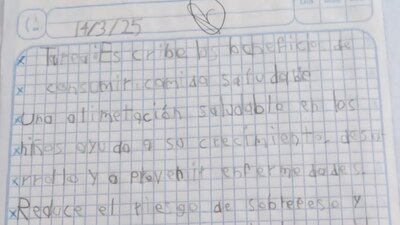 14/3/25
Tema: Escribe los beneficios de
consumir comida saludable
Una alimetación saludable en los
niños ayuda a so crecimiento, desa
rrollo y a prevenir enfermedades.
Reduce el riesgo de sobrepeso y